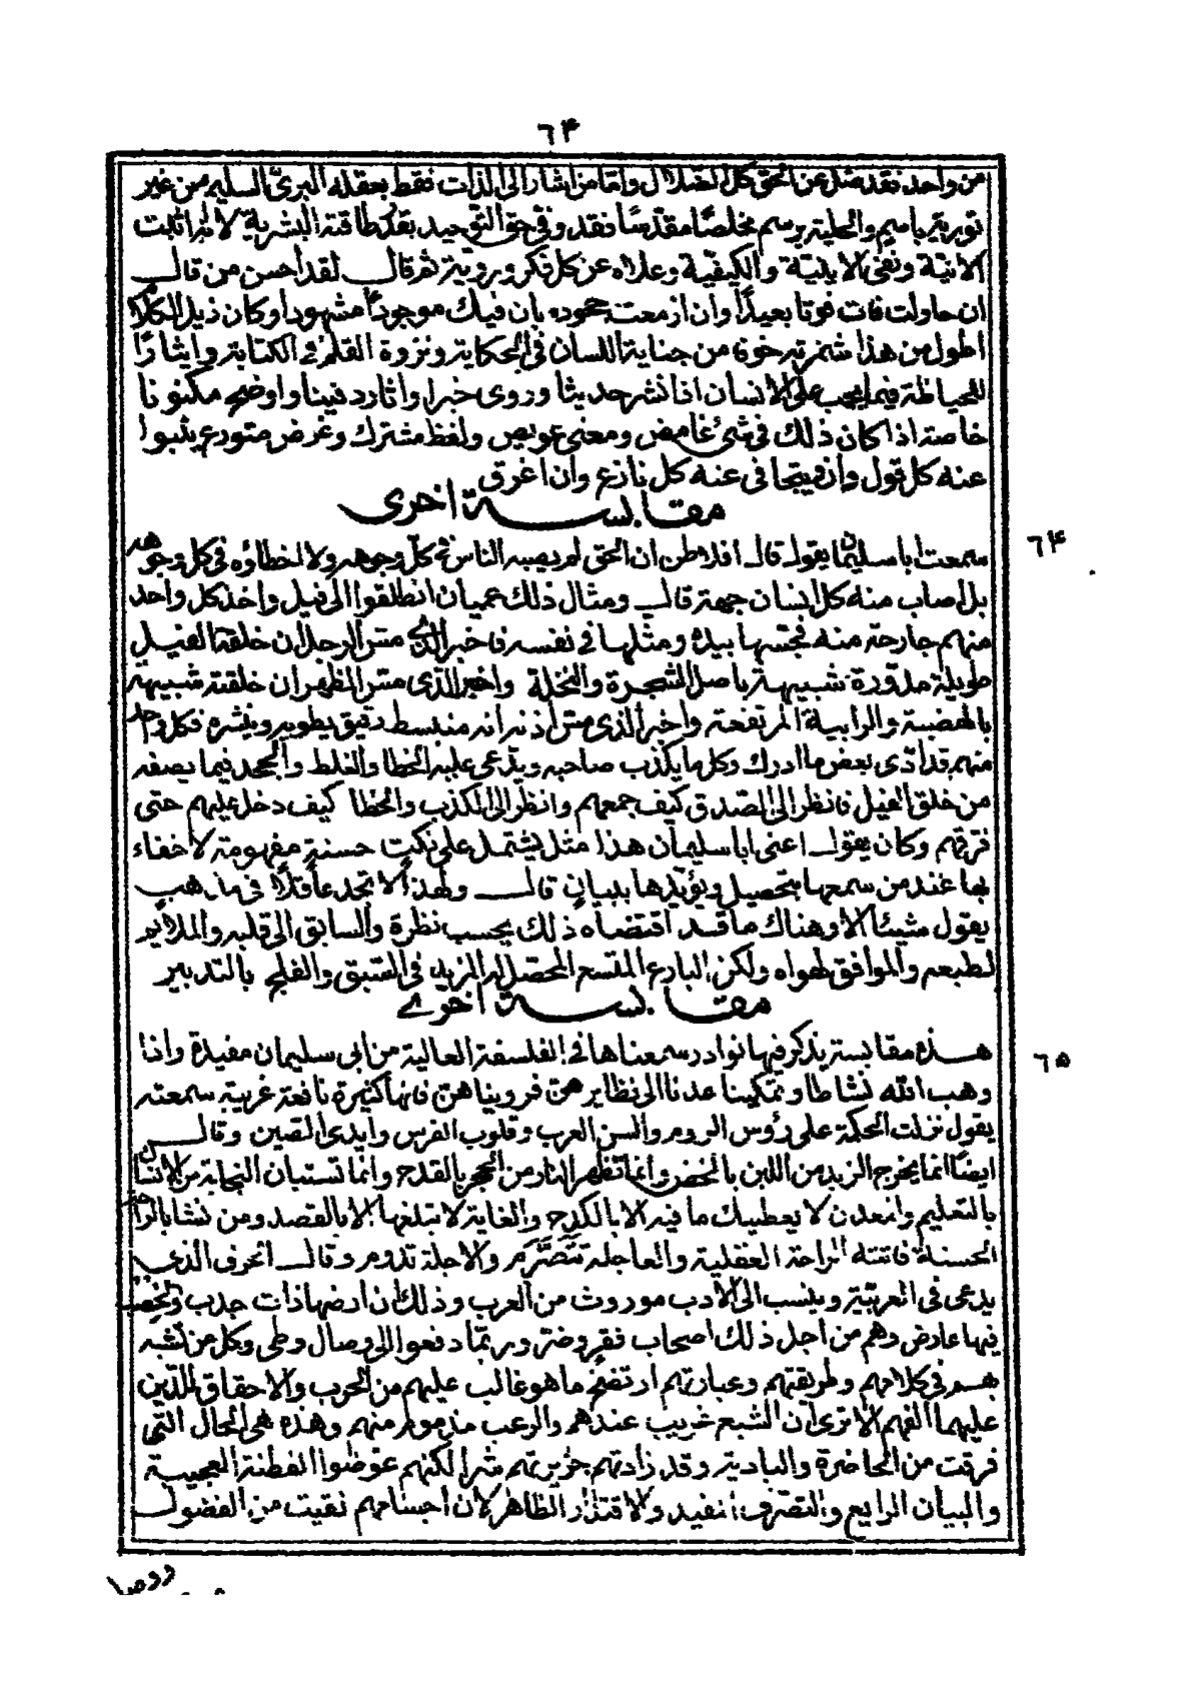 ٦٣
من واحد فقد ضل عن الحق كل الضلال واما من اشار الى الذات فقط بعقله البرئ السليم من غير
تورية باسم والحلية برسم مخلصًا مقدّسًا فقد وفى حق التوحيد بقدر طاقته البشرية لانه اثبت
الانية ونفى الاينية والكيفية وعلاه عن كل فكر وروية ثم قال لقد احسن من قال
ان حاولت فات فوتا بعيدًا وان ازمعت جحوده بان فيك موجودًا مشهودا وكان ذيل الكلام
اطول من هذا شمرته خوفا من جناية اللسان فى الحكاية ونزوة القلم فى الكتابة وايثارًا
للحياطة فيما يجب على الانسان اذا نشر حديثا وروى خبرا واثار دفينا واوضح مكنونا
خاصة اذا كان ذلك فى شئ غامض ومعنى عويص ولفظ مشترك وغرض متوزع ينبوا
عنه كل قول وان ويتجافى عنه كل نازع وان اغرق
مقابسة اخرى
٦٤
سمعت ابا سليمان يقول قال افلاطن ان الحق لم يصبه الناس فى كل وجوهه ولا اخطاؤه فى كل وجوهه
بل اصاب منه كل انسان جهة قال ومثال ذلك عميان انطلقوا الى فيل واخذ كل واحد
منهم جارحة منه فجسها بيده ومثلها فى نفسه فاخبر الذى مس الرجل ان خلقة الفيل
طويلة مدورة شبيهة باصل الشجرة والنخلة واخبر الذى مس الظهر ان خلقته شبيهة
بالهضبة والرابية المرتفعة واخبر الذى مس اذنه انه منبسط دقيق يطويه وينشره فكل واحد
منهم قد ادّى بعض ما ادرك وكل ما يكذب صاحبه ويدّعى عليه الخطا والغلط والجحد فيما يصفه
من خلق الفيل فانظر الى الصدق كيف جمعهم وانظر الى الكذب والخطا كيف دخل عليهم حتى
فرقهم وكان يقول اعنى ابا سليمان هذا مثل يشتمل على نكت حسنة مفهومة لا خفاء
بها عند من سمعها بتحصيل ويؤيدها ببيان قال ولهذا لا تجد عاقلا فى مذهب
يقول شيئا الا وهناك ما قد اقتضاه ذلك بحسب نظره والسابق الى قلبه والملايم
لطبعه والموافق لهواه ولكن البارع المتسع المحصل له المزية فى السبق والفلج بالتدبير
مقابسة اخرى
٦٥
هذه مقابسة يذكر فيها نوادر سمعناها فى الفلسفة العالية من ابى سليمان مفيدة واذا
وهب الله نشاطا وتمكينا عدنا الى نظايرهن فرويناهن فانها كثيرة نافعة غريبة سمعته
يقول نزلت الحكمة على رؤس الروم والسن العرب وقلوب الفرس وايدى الصين وقال
ايضًا انما يخرج الزبد من اللبن بالمخض وانما تظهر النار من الحجر بالقدح وانما تستبان النجابة من الانسان
بالتعليم والمعدن لا يعطيك ما فيه الا بالكدح والغاية لا تبلغها الا بالقصد ومن نشا بالراحة
الحسية فاتته الراحة العقلية والعاجلة تتصرّم والاجلة تدوم وقال الحرف الذى
يدعى فى العربية وينسب الى الادب موروث من العرب وذلك ان ارضها ذات جدب والخصب
فيها عارض وهم من اجل ذلك اصحاب فقر وضر وربما دفعوا الى وصال وطى وكل من تشبه
بهم فى كلامهم وطريقتهم وعبارتهم ارتضخ ما هو غالب عليهم من الحرب والاحقاق اللذين
عليهما الفهم الا ترى ان الشبع غريب عندهم والرعب مذموم منهم وهذه هى الحال التى
فرقت من الحاضرة والبادية وقد زادتهم جزيرتهم شرا لكنهم عوضوا الفطنة العجيبة
والبيان الرايع والتصرف المفيد والاقتدار الظاهر لان اجسامهم نقيت من الفضول